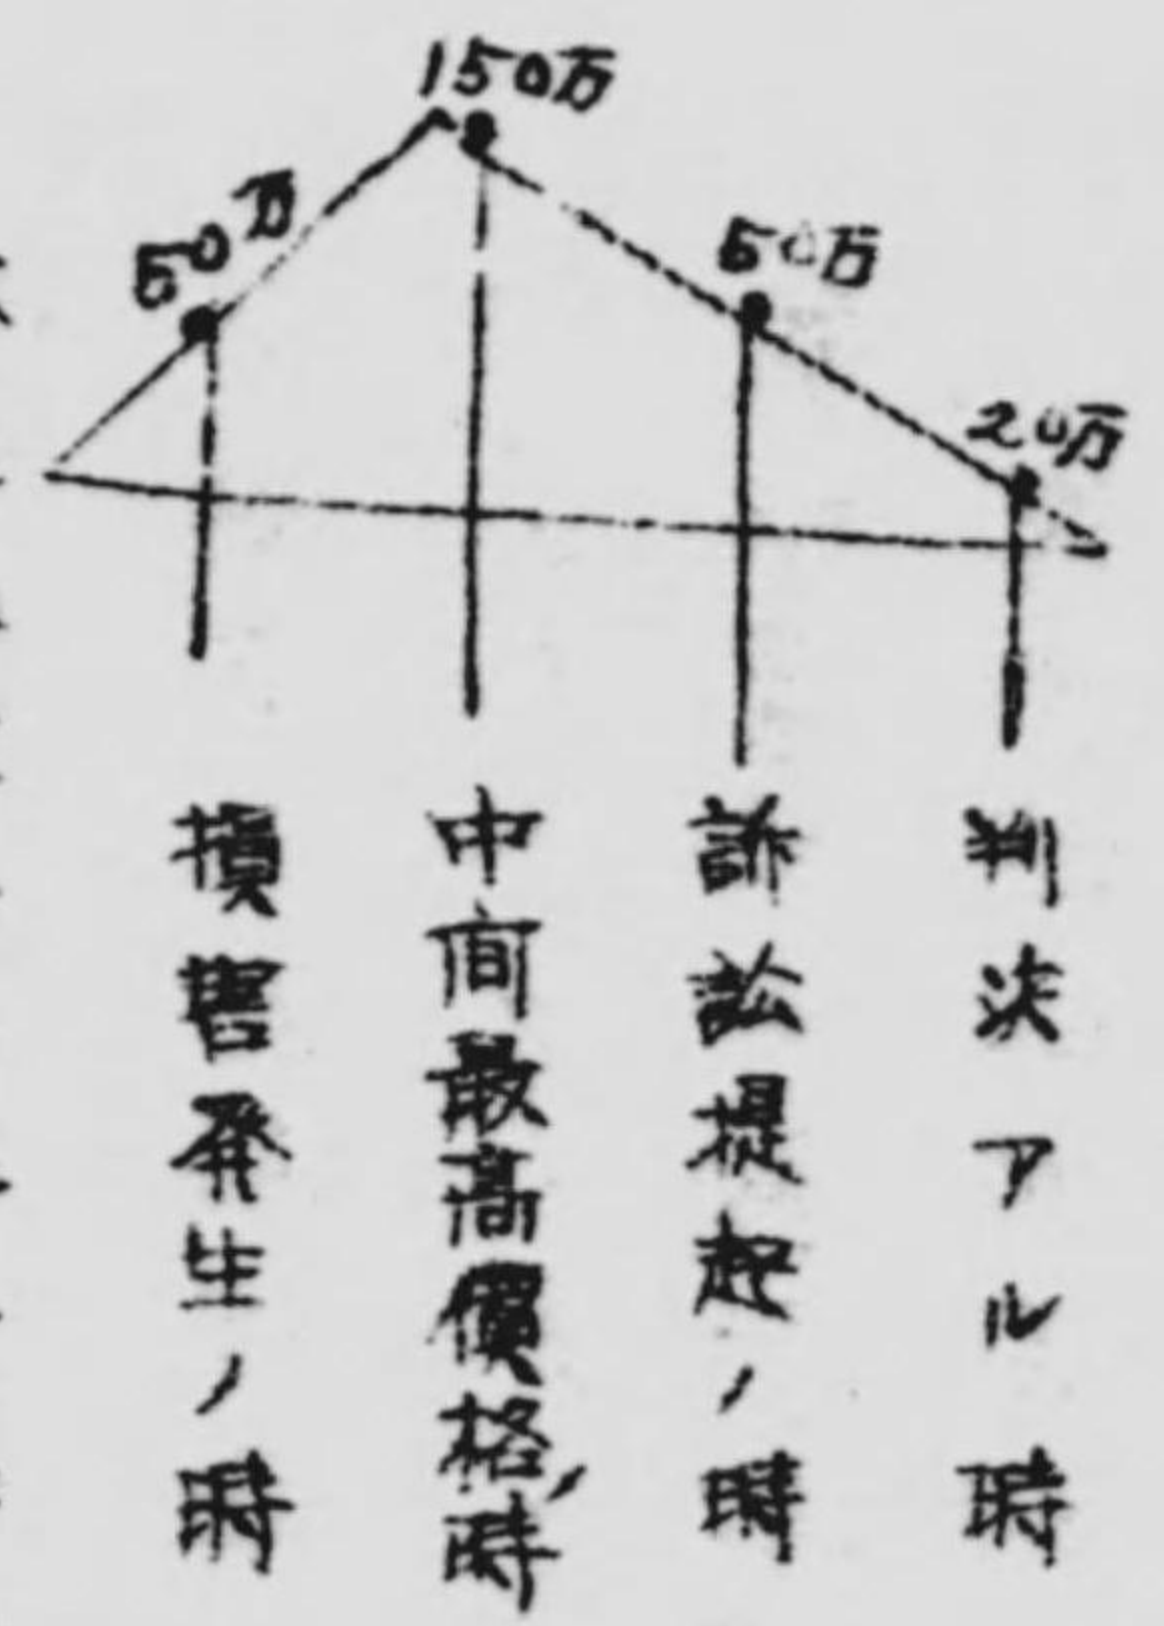 150万
50万
50万
20万
損害発生ノ時
中间最高價格ノ時
訴訟提起ノ時
判决アル時